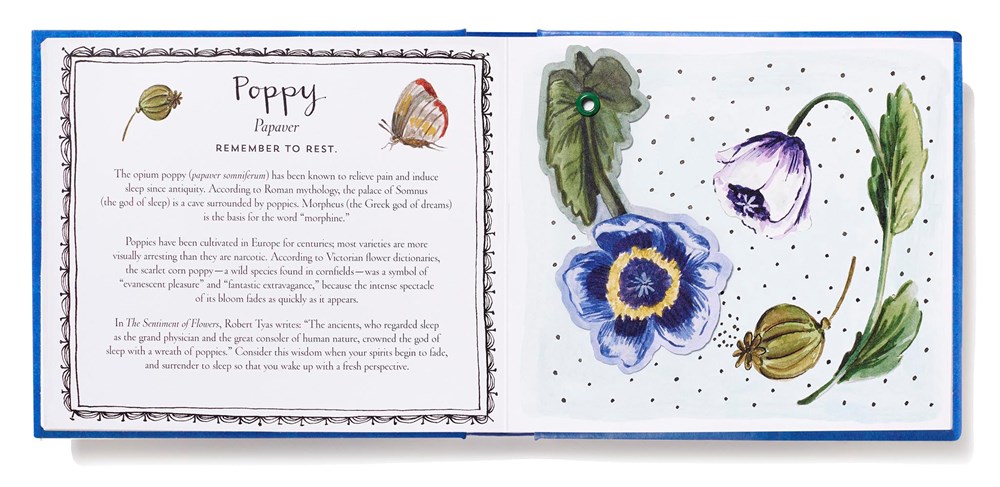 Poppy
Papaver
REMEMBER TO REST.
The opium poppy (papaver somniferum) has been known to relieve pain and induce
sleep since antiquity. According to Roman mythology, the palace of Somnus
(the god of sleep) is a cave surrounded by poppies. Morpheus (the Greek god of dreams)
is the basis for the word “morphine.”
Poppies have been cultivated in Europe for centuries; most varieties are more
visually arresting than they are narcotic. According to Victorian flower dictionaries,
the scarlet corn poppy—a wild species found in cornfields—was a symbol of
“evanescent pleasure” and “fantastic extravagance,” because the intense spectacle
of its bloom fades as quickly as it appears.
In The Sentiment of Flowers, Robert Tyas writes: “The ancients, who regarded sleep
as the grand physician and the great consoler of human nature, crowned the god of
sleep with a wreath of poppies.” Consider this wisdom when your spirits begin to fade,
and surrender to sleep so that you wake up with a fresh perspective.